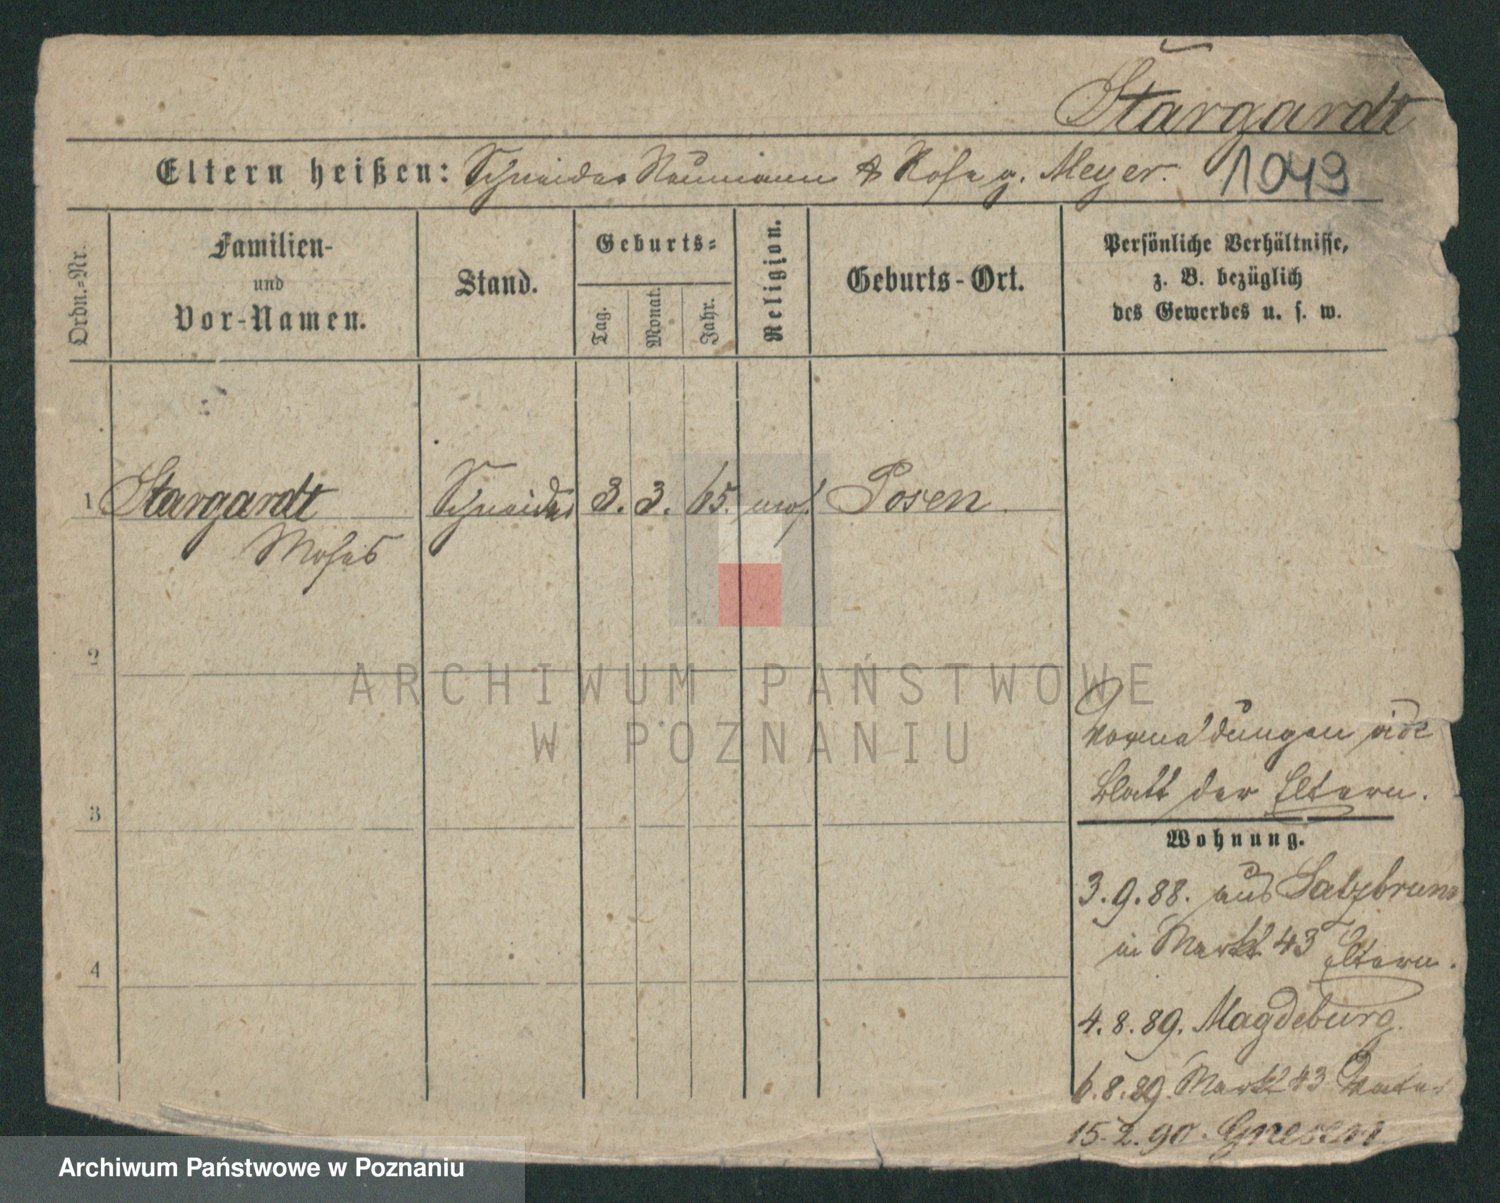 Stargardt
Eltern heißen: Schneider Neumann & Rosa g. Meyer. 1049
Ordn.-Nr.
Familien-
und
Vor-Namen.
Stand.
Geburts-
Tag.
Monat.
Jahr.
Religion.
Geburts-Ort.
Persönliche Verhältnisse,
z. B. bezüglich
des Gewerbes u. s. w.
1 Stargardt Schneider 3. 3. 65. mos. Posen
Moses
2
3
4
Vormeldungen vide
Blatt der Eltern.
Wohnung.
3.9.88. aus Salzbrunn
in Markt 43 Eltern.
4.8.89. Magdeburg.
6.8.89. Markt 43 Vater
15.2.90. Gnesen
ARCHIWUM PAŃSTWOWE
W POZNANIU
Archiwum Państwowe w Poznaniu